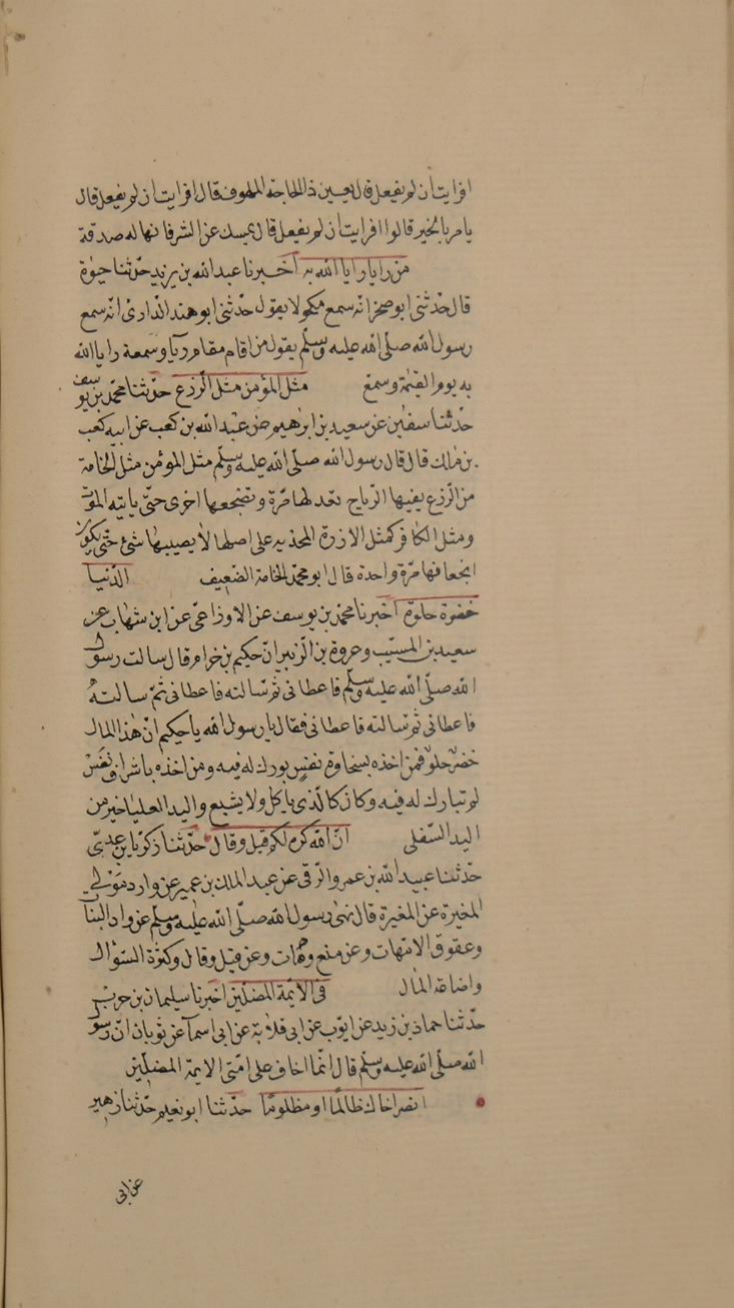 افرايت ان لم يفعل قال يعين ذا الحاجة الملهوف قال افرايت ان لم يفعل قال
يامر بالخير قالوا افرايت ان لم يفعل قال يمسك عن الشر فانها له صدقة
من رايا رايا الله به اخبرنا عبد الله بن يزيد حدثنا حيوة
قال حدثنى ابو صخر انه سمع مكحولا يقول حدثنى ابو هند الدارى انه سمع
رسول الله صلى الله عليه وسلم يقول من اقام مقام ريآء وسمعة رايا الله
به يوم القيمة وسمع مثل المؤمن مثل الزرع حدثنا محمد بن يوسف
حدثنا سفين عن سعيد بن ابرهيم عن عبد الله بن كعب عن ابيه كعب
بن مالك قال قال رسول الله صلى الله عليه وسلم مثل المؤمن مثل الخامة
من الزرع يفيها الرياح تعدلها مرة وتضجعها اخرى حتى ياتيه الموت
ومثل الكافر كمثل الارزة المجذيه على اصلها لا يصيبها شئ حتى يكون
انجعافها مرة واحدة قال ابو محمد الخامة الضعيف الدنيا
خضرة حلوة اخبرنا محمد بن يوسف عن الاوزاعى عن ابن شهاب عن
سعيد بن المسيب وعروة بن الزبير ان حكيم بن حزام قال سالت رسول
الله صلى الله عليه وسلم فاعطانى ثم سالته فاعطانى ثم سالته
فاعطانى ثم سالته فاعطانى فقال يا رسول الله يا حكيم ان هذا المال
خضر حلو فمن اخذه بسخاوة نفس بورك له فيه ومن اخذه باشراف نفس
لم تبارك له فيه وكان كالذى ياكل ولا يشبع واليد العليا خير من
اليد السفلى ان الله كره لكم قيل وقال حدثنا زكريا بن عدى
حدثنا عبيد الله بن عمرو الرقى عن عبد الملك بن عمير عن وراد مولى
المغيرة عن المغيرة قال نهى رسول الله صلى الله عليه وسلم عن واد البنات
وعقوق الامهات وعن منع وهات وعن قيل وقال وكثرة السؤال
واضاعة المال فى الايمة المضلين اخبرنا سليمان بن حرب
حدثنا حماد بن زيد عن ايوب عن ابى قلابة عن ابى اسمآ عن ثوبان ان رسول
الله صلى الله عليه وسلم قال انما اخاف على امتى الايمة المضلين
انصر اخاك ظالما او مظلوما حدثنا ابو نعيم حدثنا زهير
عن ابى